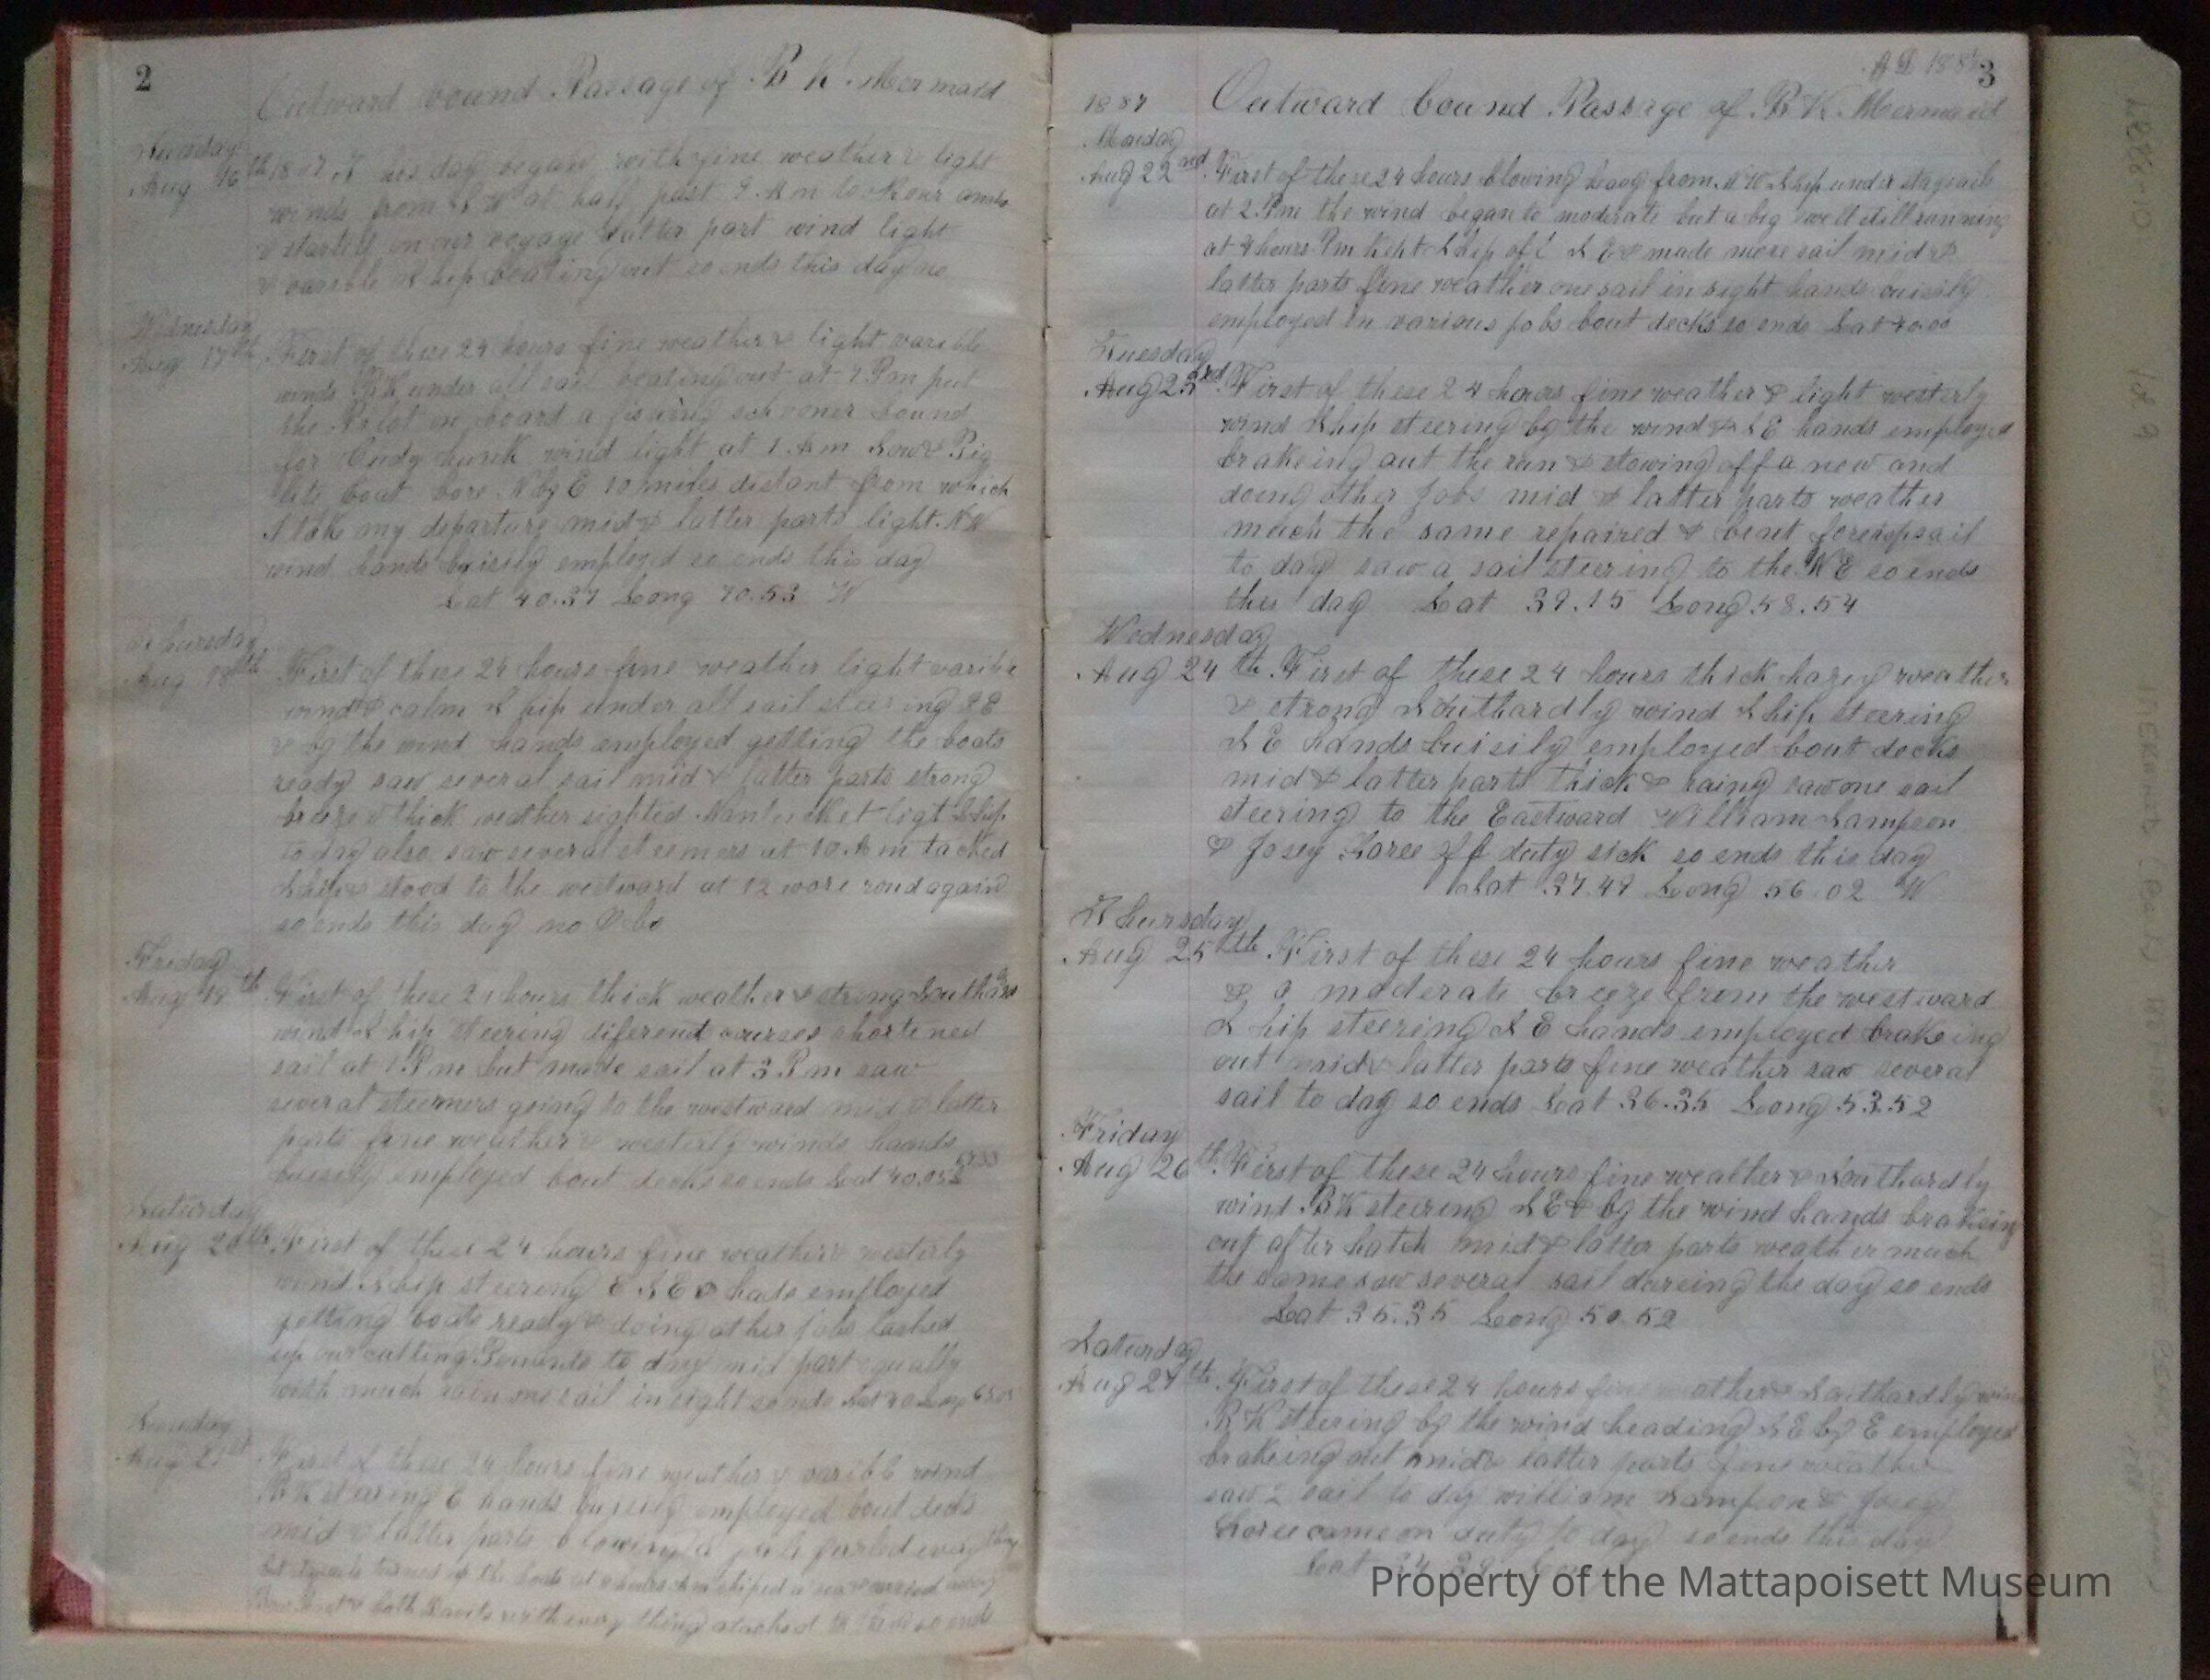 2
Outward bound Passage of B K Mermaid
Tuesday
Aug 16th 1887 This day began with fine weather & light
winds from S W at half past 9 Am took our
& started on our voyage latter part wind light
& varible Ship beating out so ends this day no
Wednesday
Aug 17th First of these 24 hours fine weather & light varible
winds BK under all sail beating out at 7 Pm put
the Pilot on board a fishing schooner bound
for Cudy hunk wind light at 1 Am Sow & Pig
lite boat bore N by E 10 miles distant from which
I take my departure mid & latter parts light N W
wind hands buisily employed so ends this day
Lat 40.37 Long 70.53 W
Thursday
Aug 18th First of these 24 hours fine weather light varible
wind & calm Ship under all sail steering SE
& by the wind hands employed getting the boats
ready saw several sail mid & latter parts strong
breeze & thick weather sighted Nantucket ligt Ship
to day also saw several steemers at 10 Am tacked
Ship & stood to the westward at 12 wore round again
so ends this day no
Friday
Aug 19th First of these 24 hours thick weather & strong
wind Ship steering diferend courses shortened
sail at 1 Pm but made sail at 3 Pm saw
several steemers going to the westward mid & latter
parts fine weather & westerly winds hands
buisily employed bout decks so ends Lat
Saturday
Aug 20th First of these 24 hours fine weather & westerly
wind Ship steering E S E & hads employed
getting boats ready & doing other jobs lashed
up our cutting to day mid part squally
with much rain one sail in sight so ends Lat 40 Long
Sunday
Aug 21st First of these 24 hours fine weather & varible wind
BK stearing E hands buisily employed bout decks
mid & latter parts blowing a gale furled every thing
but turned up the boats at hours Am shiped a sea & carried away
Bow Boat & both Davits with every thing atached to them so ends
A D 188
3
1887
Outward bound Passage of B K Mermaid
Monday
Aug 22nd First of these 24 hours blowing heavy from N W Ship under staysails
at 2 Pm the wind began to moderate but a big swell still running
at 4 hours Pm kept Ship off S E & made more sail mid &
latter parts fine weather one sail in sight hands buisily
employed in various jobs bout decks so ends Lat 40.00
Tuesday
Aug 23rd First of these 24 hours fine weather & light westerly
wind Ship steering by the wind & S E hands employed
brakeing out the run & stowing off a new and
doing other jobs mid & latter parts weather
much the same repaired & bent foretopsail
to day saw a sail steering to the N E so ends
this day Lat 39.15 Long 58.54
Wednesday
Aug 24th First of these 24 hours thick hazey weather
& strong Southardly wind Ship steering
S E hands buisily employed bout decks
mid & latter parts thick & rainy saw one sail
steering to the Eastward William Sampson
& Josey off duty sick so ends this day
Lat 37.47 Long 56.02 W
Thursday
Aug 25th First of these 24 hours fine weather
& a moderate breeze from the westward
Ship steering S E hands employed brakeing
out mid & latter parts fine weather saw several
sail to day so ends Lat 36.35 Long 53.52
Friday
Aug 26th First of these 24 hours fine weather & Southardly
wind BK steering S E & by the wind hands brakeing
out after hatch mid & latter parts weather much
the same saw several sail dureing the day so ends
Lat 35.35 Long 50.52
Saturday
Aug 27th First of these 24 hours fine weather & Southardly wind
BK steering by the wind heading S E by E employed
brakeing out mid & latter parts fine weather
saw 2 sail to day william Sampson & Josey
came on duty to day so ends this day
Lat 34
Property of the Mattapoisett Museum